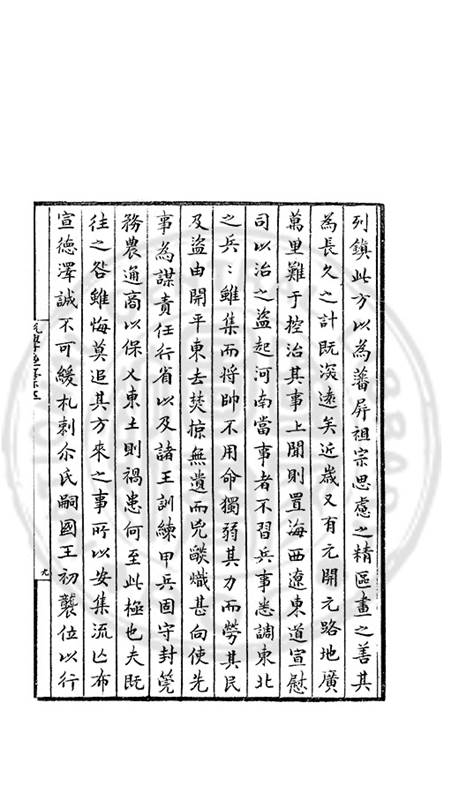 列鎮此方以為藩屏祖宗思慮之精區畫之善其
為長久之計既深遠矣近歲又有元開元路地廣
萬里難于控治其事上聞則置海西遼東道宣慰
司以治之盗起河南當事者不習兵事悉調東北
之兵：雖集而將帥不用命獨弱其力而勞其民
及盗由開平東去焚掠無遺而兇燄熾甚向使先
事為謀責任行省以及諸王訓練甲兵固守封筦
務農通商以保乂東土則禍患何至此極也夫既
往之咎雖悔莫追其方來之事所以安集流亡布
宣德澤誠不可緩札剌尒氏嗣國王初襲位以行
九